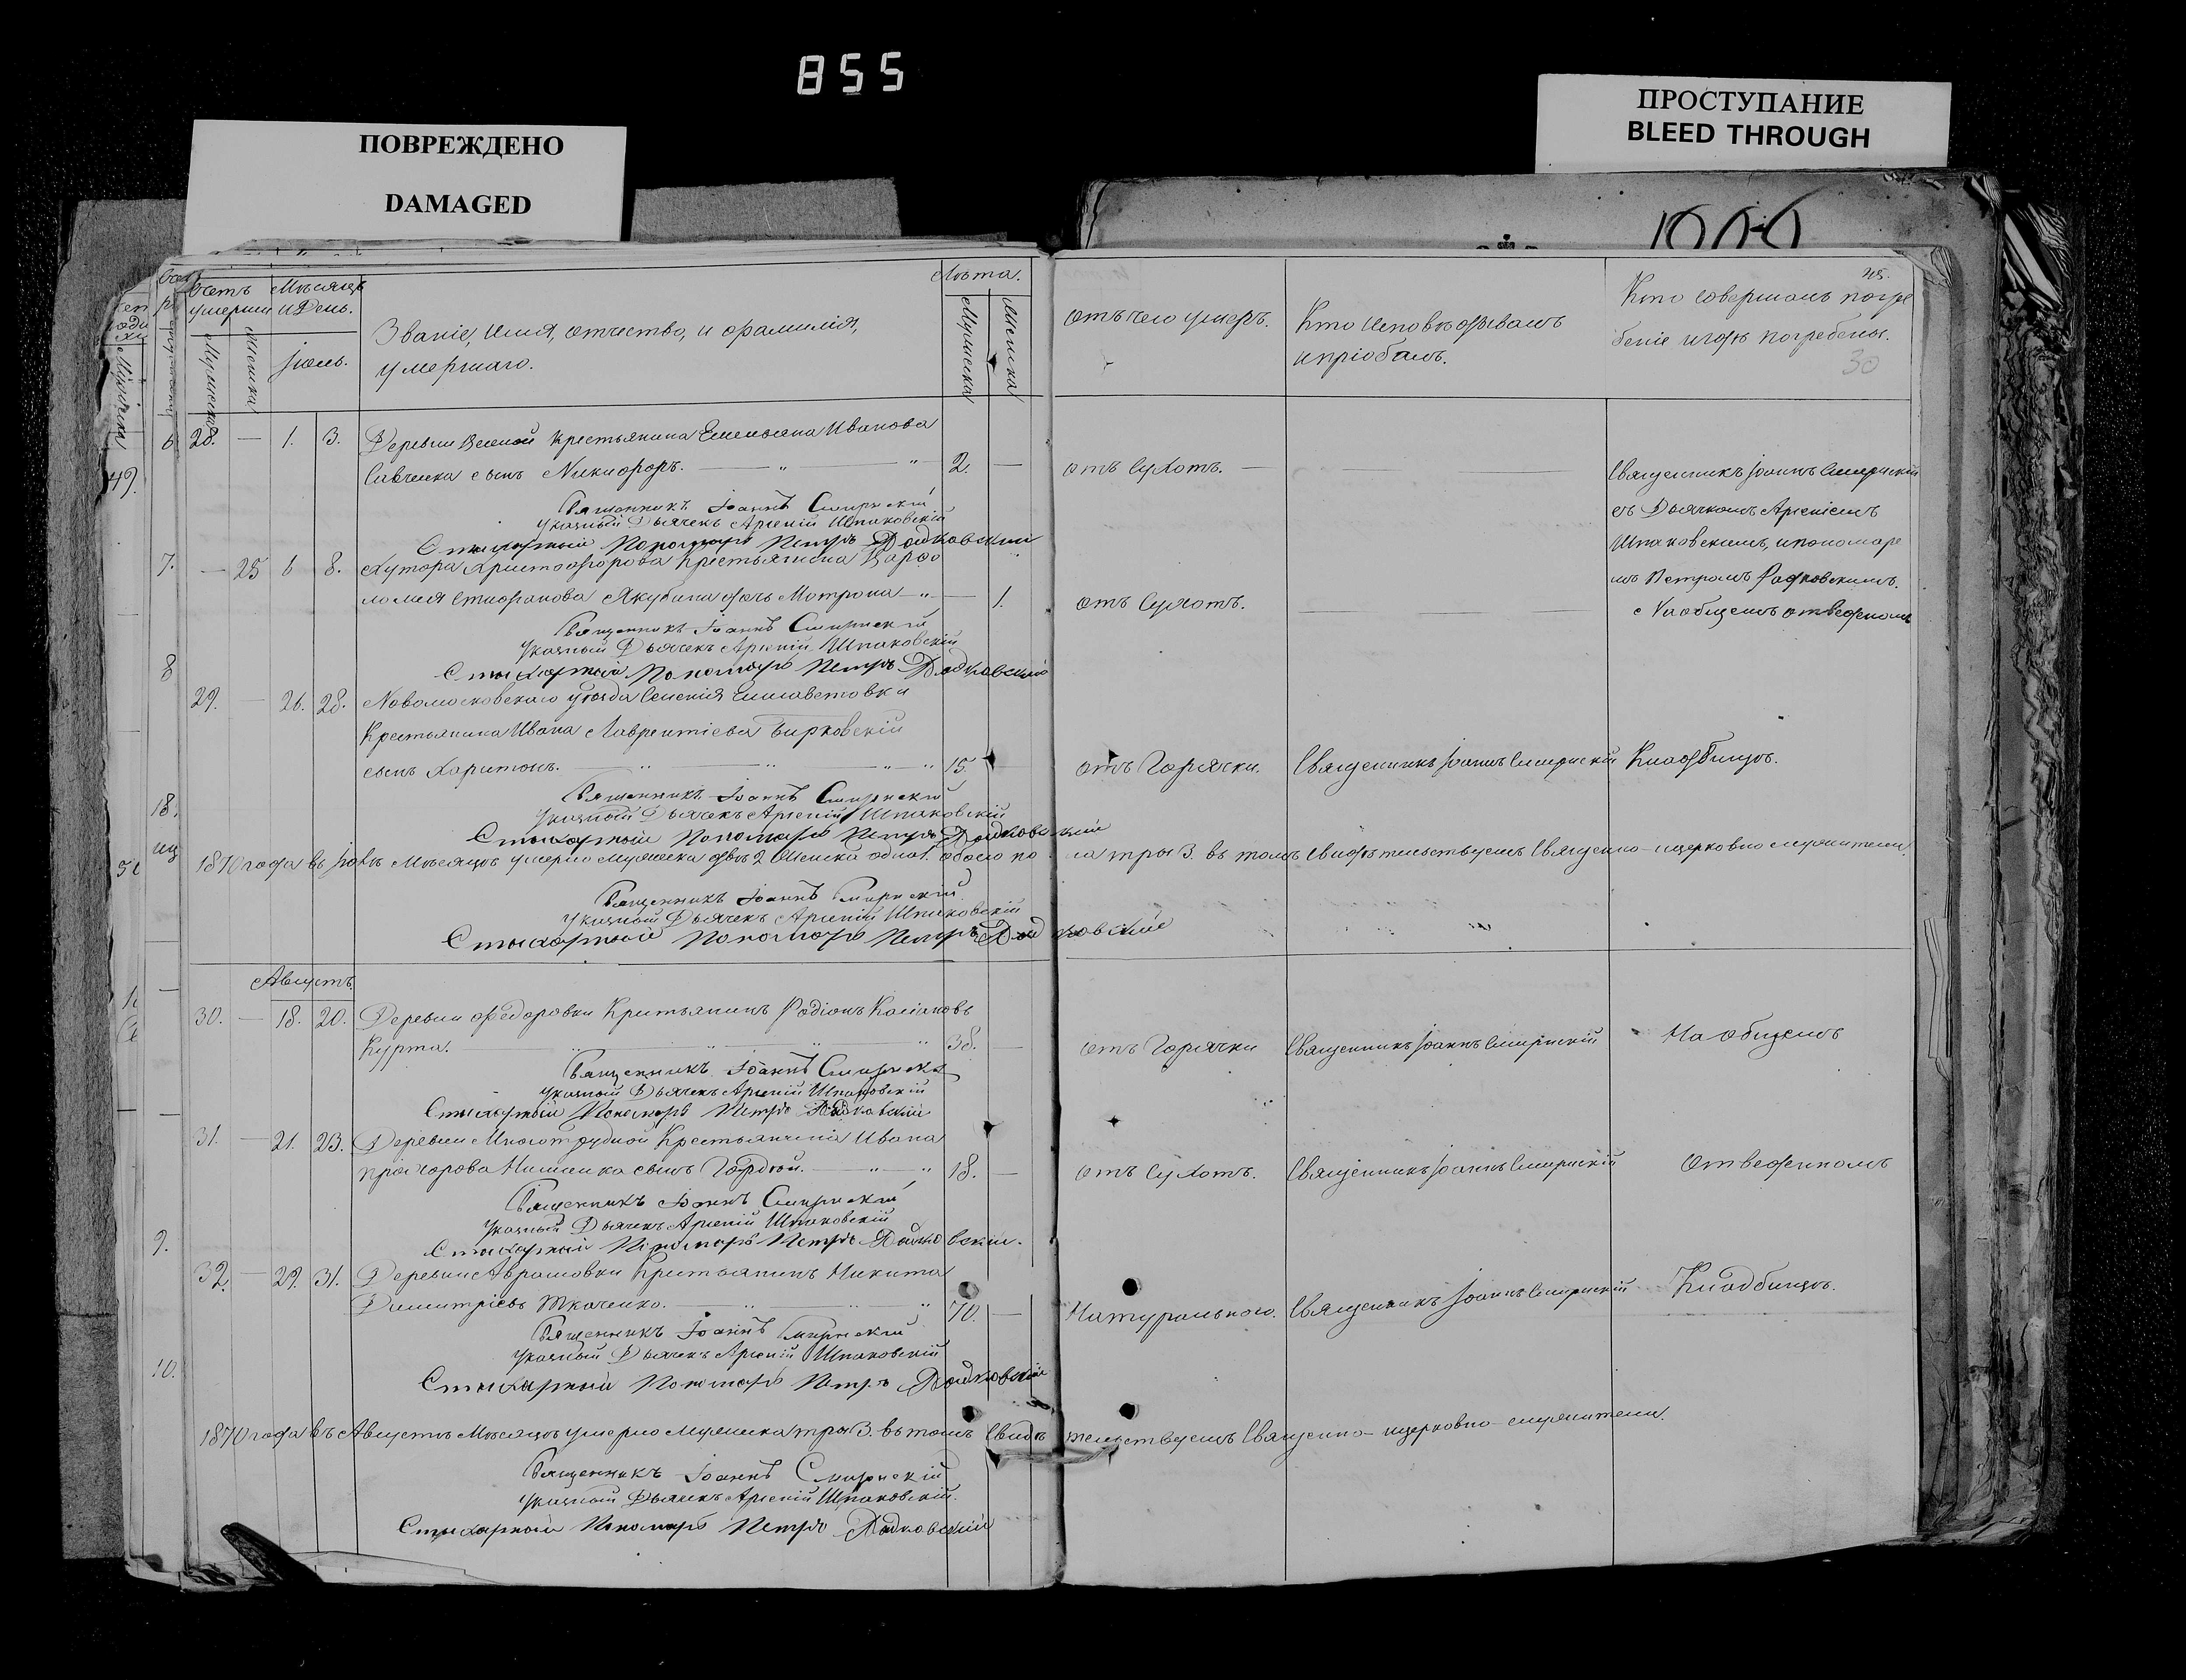 855
ПОВРЕЖДЕНО
DAMAGED
ПРОСТУПАНИЕ
BLEED THROUGH
45.
30
Счетъ умерши
Мѣсяцъ и День.
Іюль.
Званіе, имя, отчество, и фамилія,
умершаго.
Лѣта.
Мужеска
Женска
Отъ чего умеръ.
Кто исповѣдывалъ
и пріобщалъ.
Кто совершалъ погре
беніе и гдѣ погребены.
28. — 1. 3. Деревни Крестьянина Емельяна Иванова
Савченка сынъ Никифоръ. 2. — отъ Сухотъ. —
Священникъ Іоаннъ Смирнскій
съ Дьячкомъ Арсеніемъ
Шпаковскимъ, и пономаре
мъ Петромъ
Священникъ Іоаннъ Смирнскій
Указный Дьячекъ Арсеній Шпаковскій
Стихарный Пономарь Петръ
— 25 6 8. Хутора Христофорова Крестьянина Варфо
ломея Стефанова Якубина дочь Мотрона — 1. отъ Сухотъ. —
Священникъ Іоаннъ Смирнскій
Указный Дьячекъ Арсеній Шпаковскій
Стихарный Пономарь Петръ
29. — 26. 28. Новомосковскаго уѣзда Селенія Елисаветовки
Крестьянина Ивана Лаврентіева Бирковскій
сынъ Харитонъ. 15. отъ Горячки. Священникъ Іоаннъ Смирнскій Кладбищѣ.
Священникъ Іоаннъ Смирнскій
Указный Дьячекъ Арсеній Шпаковскій
Стихарный Пономарь Петръ
1870 года въ Іюлѣ Мѣсяцѣ умерло Мужеска два 2 Женска одна 1. обоего по ла три 3. въ томъ Свидѣтельствуемъ Священно-ицерковно служители.
Священникъ Іоаннъ Смирнскій
Указный Дьячекъ Арсеній Шпаковскій
Стихарный Пономарь Петръ
Августъ.
30. — 18. 20. Деревни Федоровки Крестьянинъ Родіонъ Касіановъ
Курта. 38. — отъ Горячки Священникъ Іоаннъ Смирнскій На Общемъ
Священникъ Іоаннъ Смирнскій
Указный Дьячекъ Арсеній Шпаковскій
Стихарный Пономарь Петръ
31. — 21. 23. Деревни Многотрудной Крестьянина Ивана
Прохорова сынъ Гордѣй. 18. — отъ Сухотъ. Священникъ Іоаннъ Смирнскій Отведенномъ
Священникъ Іоаннъ Смирнскій
Указный Дьячекъ Арсеній Шпаковскій
Стихарный Пономарь Петръ
32. — 29. 31. Деревни Аврамовки Крестьянинъ Никита
Димитріевъ Ткаченко. 70. — Натурального. Священникъ Іоаннъ Смирнскій Кладбищѣ.
Священникъ Іоаннъ Смирнскій
Указный Дьячекъ Арсеній Шпаковскій
Стихарный Пономарь Петръ
1870 года въ Августѣ Мѣсяцѣ умерло Мужеска три 3. въ томъ Свидѣтельствуемъ Священно-ицерковно-служители.
Священникъ Іоаннъ Смирнскій
Указный Дьячекъ Арсеній Шпаковскій.
Стихарный Пономарь Петръ